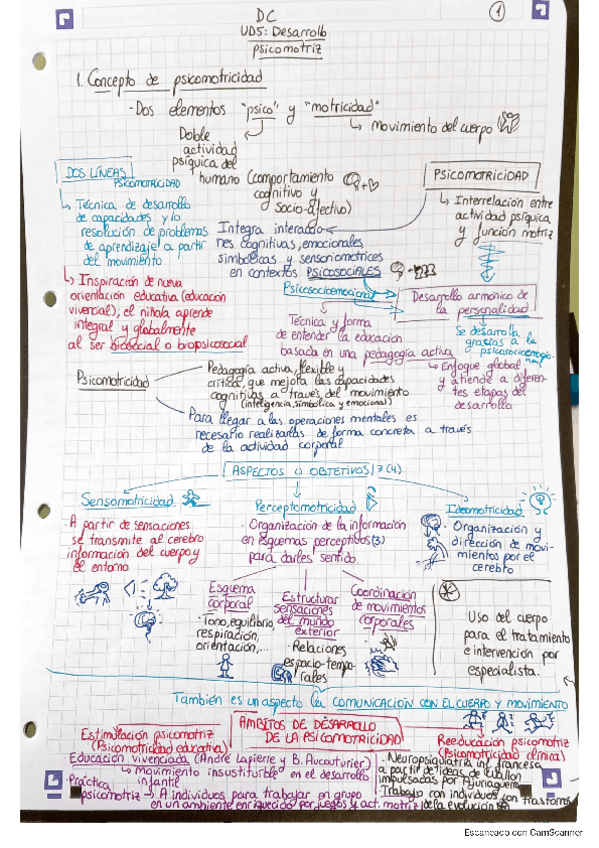 DC
1
UD5: Desarrollo
psicomotriz
1. Concepto de psicomotricidad
- Dos elementos "psico" y "motricidad"
↳ movimiento del cuerpo
Doble
actividad
psíquica del
humano (comportamiento
cognitivo y
socio-afectivo)
DOS LÍNEAS
PSICOMOTRICIDAD
↳ Técnica de desarrollo
de capacidades y/o
resolución de problemas
de aprendizaje a partir
del movimiento
↳ Inspiración de nueva
orientación educativa (educación
vivencial); el niño/a aprende
integral y globalmente
al ser biosocial o biopsicosocial
PSICOMOTRICIDAD
↳ Interrelación entre
actividad psíquica
y función motriz
Integra interaccio-
nes cognitivas, emocionales,
simbólicas y sensoriomotrices
en contextos PSICOSOCIALES
Psicosocioemocional
Desarrollo armónico de
la personalidad
Técnica y forma
de entender la educación
basada en una pedagogía activa
Se desarrolla
gracias a la
↳ Enfoque global
y atiende a diferen-
tes etapas del
desarrollo
Psicomotricidad
Pedagogía activa, flexible y
crítica, que mejora las capacidades
cognitivas a través del movimiento
(inteligencia, simbólica y emocional)
Para llegar a las operaciones mentales es
necesario realizarlas de forma concreta a través
de la actividad corporal
ASPECTOS O OBJETIVOS / 3 (4)
Sensomotricidad
· A partir de sensaciones
se transmite al cerebro
información del cuerpo y
el entorno
Perceptomotricidad
· Organización de la información
en esquemas perceptivos (3)
para darles sentido.
Ideomotricidad
· Organización y
dirección de movi-
mientos por el
cerebro
Esquema
corporal
· Tono, equilibrio,
respiración,
orientación,...
Estructurar
sensaciones
del mundo
exterior
· Relaciones
espacio-tempo-
rales
Coordinación
de movimientos
corporales
Uso del cuerpo
para el tratamiento
e intervención por
especialista.
También es un aspecto la COMUNICACIÓN CON EL CUERPO Y MOVIMIENTO
ÁMBITOS DE DESARROLLO
DE LA PSICOMOTRICIDAD
Estimulación psicomotriz
(Psicomotricidad educativa)
Educación vivenciada (André Lapierre y B. Aucouturier)
↳ movimiento insustituible en el desarrollo
infantil
· Práctica
psicomotriz → A individuos para trabajar en grupo
en un ambiente enriquecido por juegos y act. motriz
Reeducación psicomotriz
(Psicomotricidad clínica)
· Neuropsiquiatría inf. francesa
a partir de ideas de Wallon
impulsadas por Ajuriaguerra
· Trabajo con individuos con trastornos
de la evolución
Escaneado con CamScanner